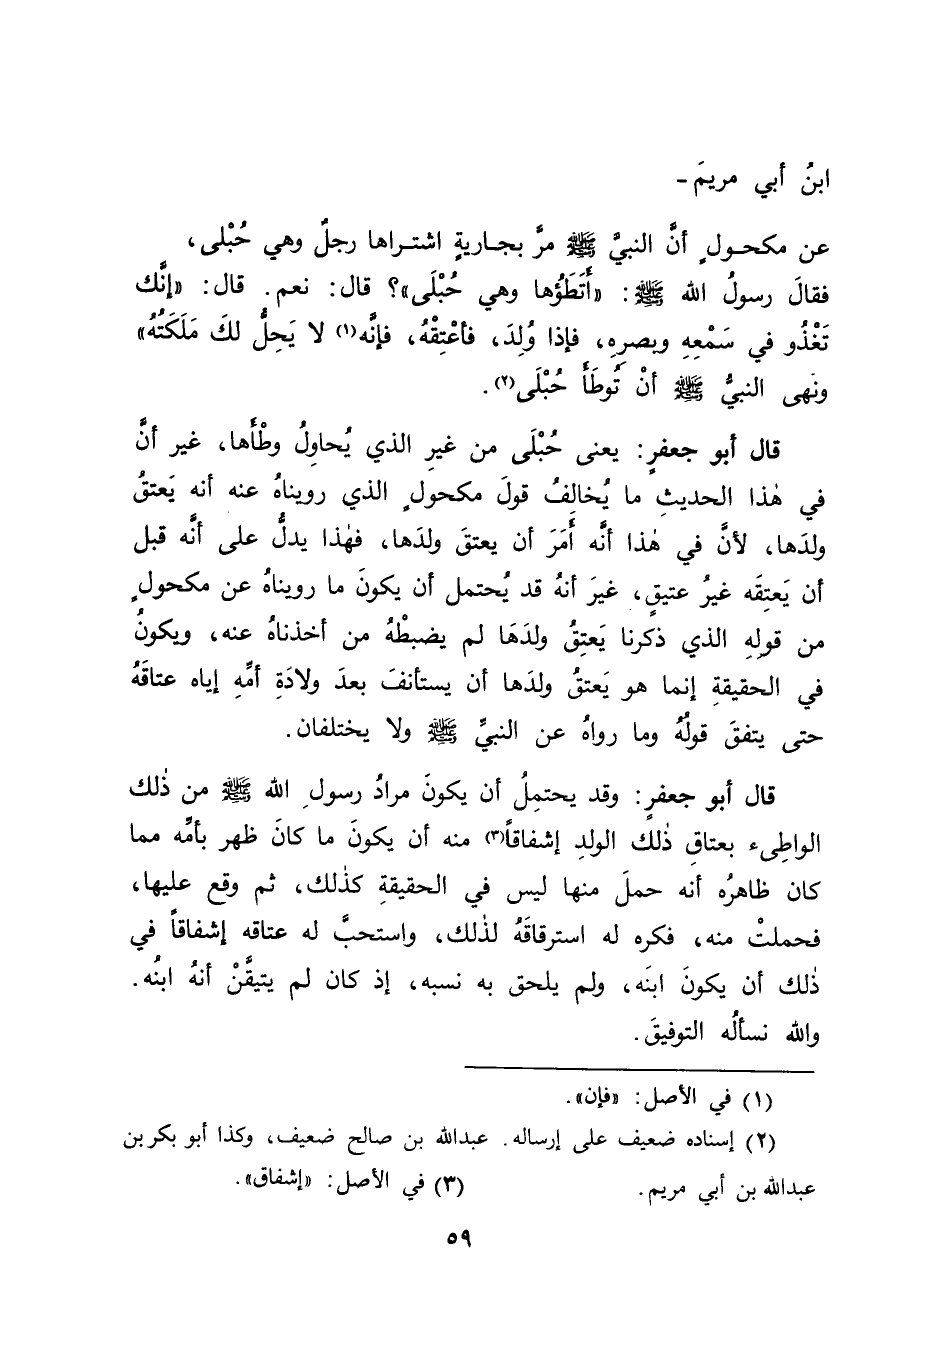 ابنُ أبي مريمَ -
عن مكحـولٍ أنَّ النبيَّ ﷺ مرَّ بجـاريةٍ اشتـراها رجلٌ وهي حُبْلى،
فقالَ رسولُ الله ﷺ: «أَتَطَؤُها وهي حُبْلَى»؟ قال: نعم. قال: «إنَّك
تَغْذُو في سَمْعِهِ وبصرِهِ، فإذا وُلِدَ، فأعْتِقْهُ، فإنَّه(١) لا يَحِلُّ لكَ مَلَكَتُهُ»
ونَهى النبيُّ ﷺ أنْ تُوطَأَ حُبْلَى(٢).
قال أبو جعفرٍ: يعنى حُبْلَى من غيرِ الذي يُحاولُ وطْأَها، غير أنَّ
في هٰذا الحديثِ ما يُخالِفُ قولَ مكحولٍ الذي رويناهُ عنه أنه يَعتقُ
ولدَها، لأنَّ في هٰذا أنَّه أَمَرَ أن يعتقَ ولدَها، فهٰذا يدلُّ على أنَّه قبل
أن يَعتِقَه غيرُ عتيقٍ، غيرَ أنهُ قد يُحتمل أن يكونَ ما رويناهُ عن مكحولٍ
من قولِهِ الذي ذكرنا يَعتِقُ ولدَهَا لم يضبطْهُ من أخذناهُ عنه، ويكونُ
في الحقيقةِ إنما هو يَعتقُ ولدَها أن يستأنفَ بعدَ ولادَةِ أمِّهِ إياه عتاقَهُ
حتى يتفقَ قولُهُ وما رواهُ عن النبيِّ ﷺ ولا يختلفان.
قال أبو جعفرٍ: وقد يحتمِلُ أن يكونَ مرادُ رسولِ الله ﷺ من ذٰلك
الواطِىء بعتاقِ ذٰلك الولدِ إشفاقاً(٣) منه أن يكونَ ما كانَ ظهر بأمِّه مما
كان ظاهرُه أنه حملَ منها ليس في الحقيقةِ كذٰلك، ثم وقع عليها،
فحملتْ منه، فكره له استرقاقَهُ لذٰلك، واستحبَّ له عتاقه إشفاقاً في
ذٰلك أن يكونَ ابنَه، ولم يلحق به نسبه، إذ كان لم يتيقَّنْ أنهُ ابنُه.
والله نسألُه التوفيقَ.
(١) في الأصل: «فإن».
(٢) إسناده ضعيف على إرساله. عبدالله بن صالح ضعيف، وكذا أبو بكر بن
عبدالله بن أبي مريم. (٣) في الأصل: «إشفاق».
٥٩